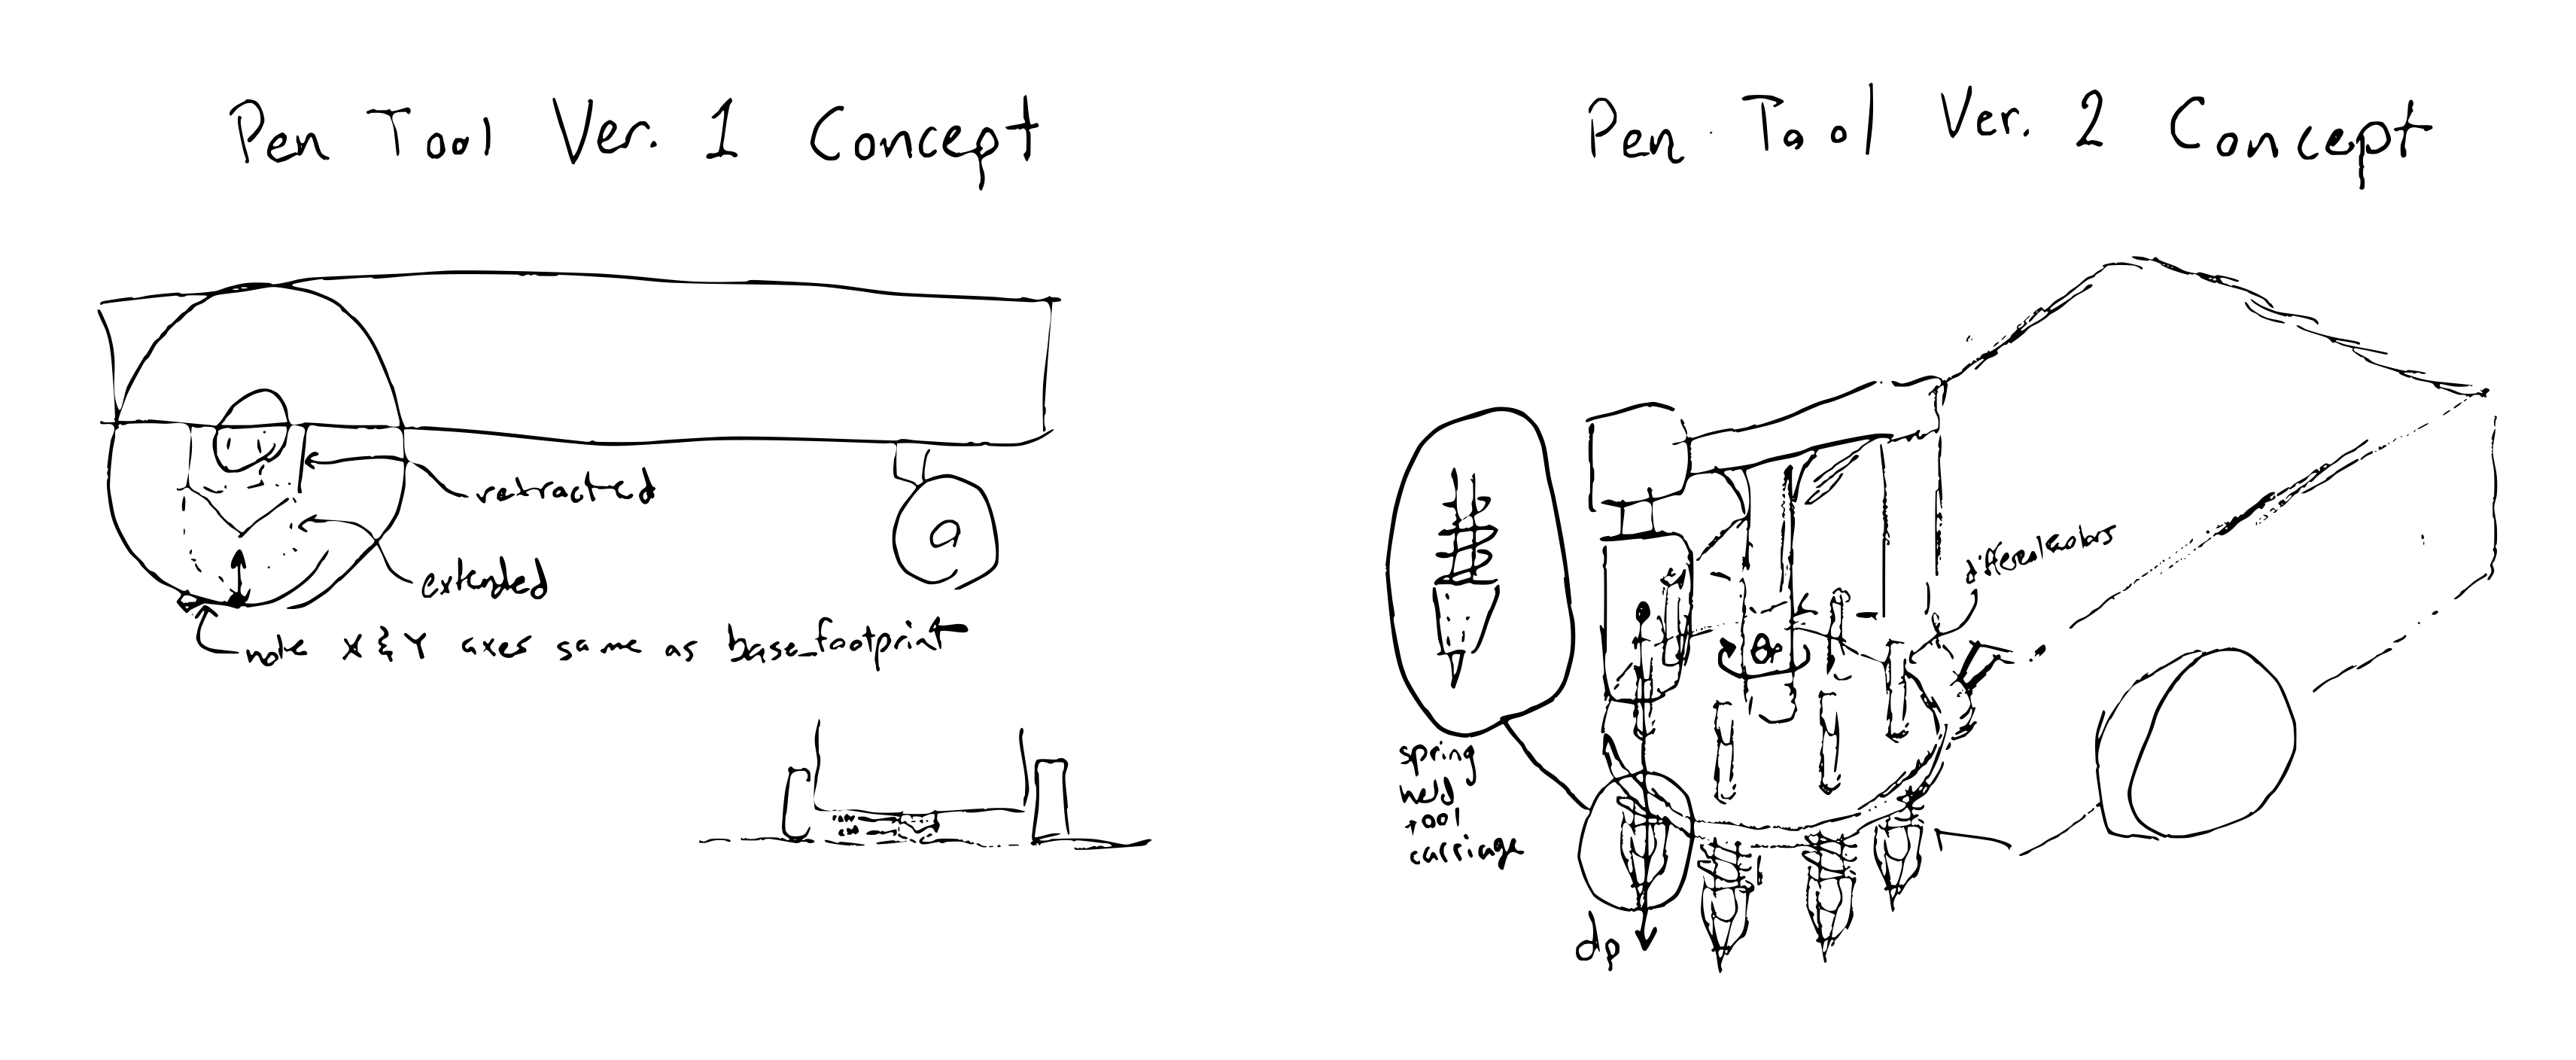 Pen Tool Ver. 1 Concept
retracted
extended
note X & Y axes same as base_footprint
Pen Tool Ver. 2 Concept
different colors
θr
spring
held
tool
carriage
dp